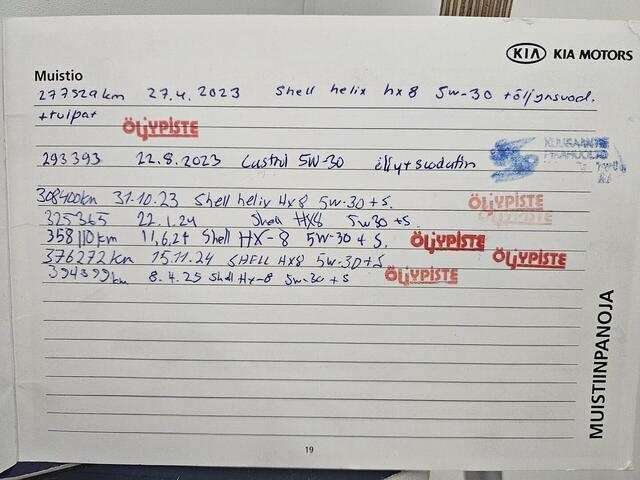 KIA KIA MOTORS
Muistio
277529km 27.4.2023 Shell helix hx8 5w-30 +öljynsuod.
+tulpat
ÖLJYPISTE
293393 22.8.2023 Castrol 5W-30 öljy+suodatin
308400km 31.10.23 Shell helix HX8 5w-30+S. ÖLJYPISTE
325365 22.1.24 Shell HX8 5w30+S.
358110km 11.6.24 Shell HX-8 5W-30+S. ÖLJYPISTE
376272km 15.11.24 SHELL HX8 5w-30+S ÖLJYPISTE
394399km 8.4.25 Shell Hx-8 5w-30+S ÖLJYPISTE
MUISTIINPANOJA
19